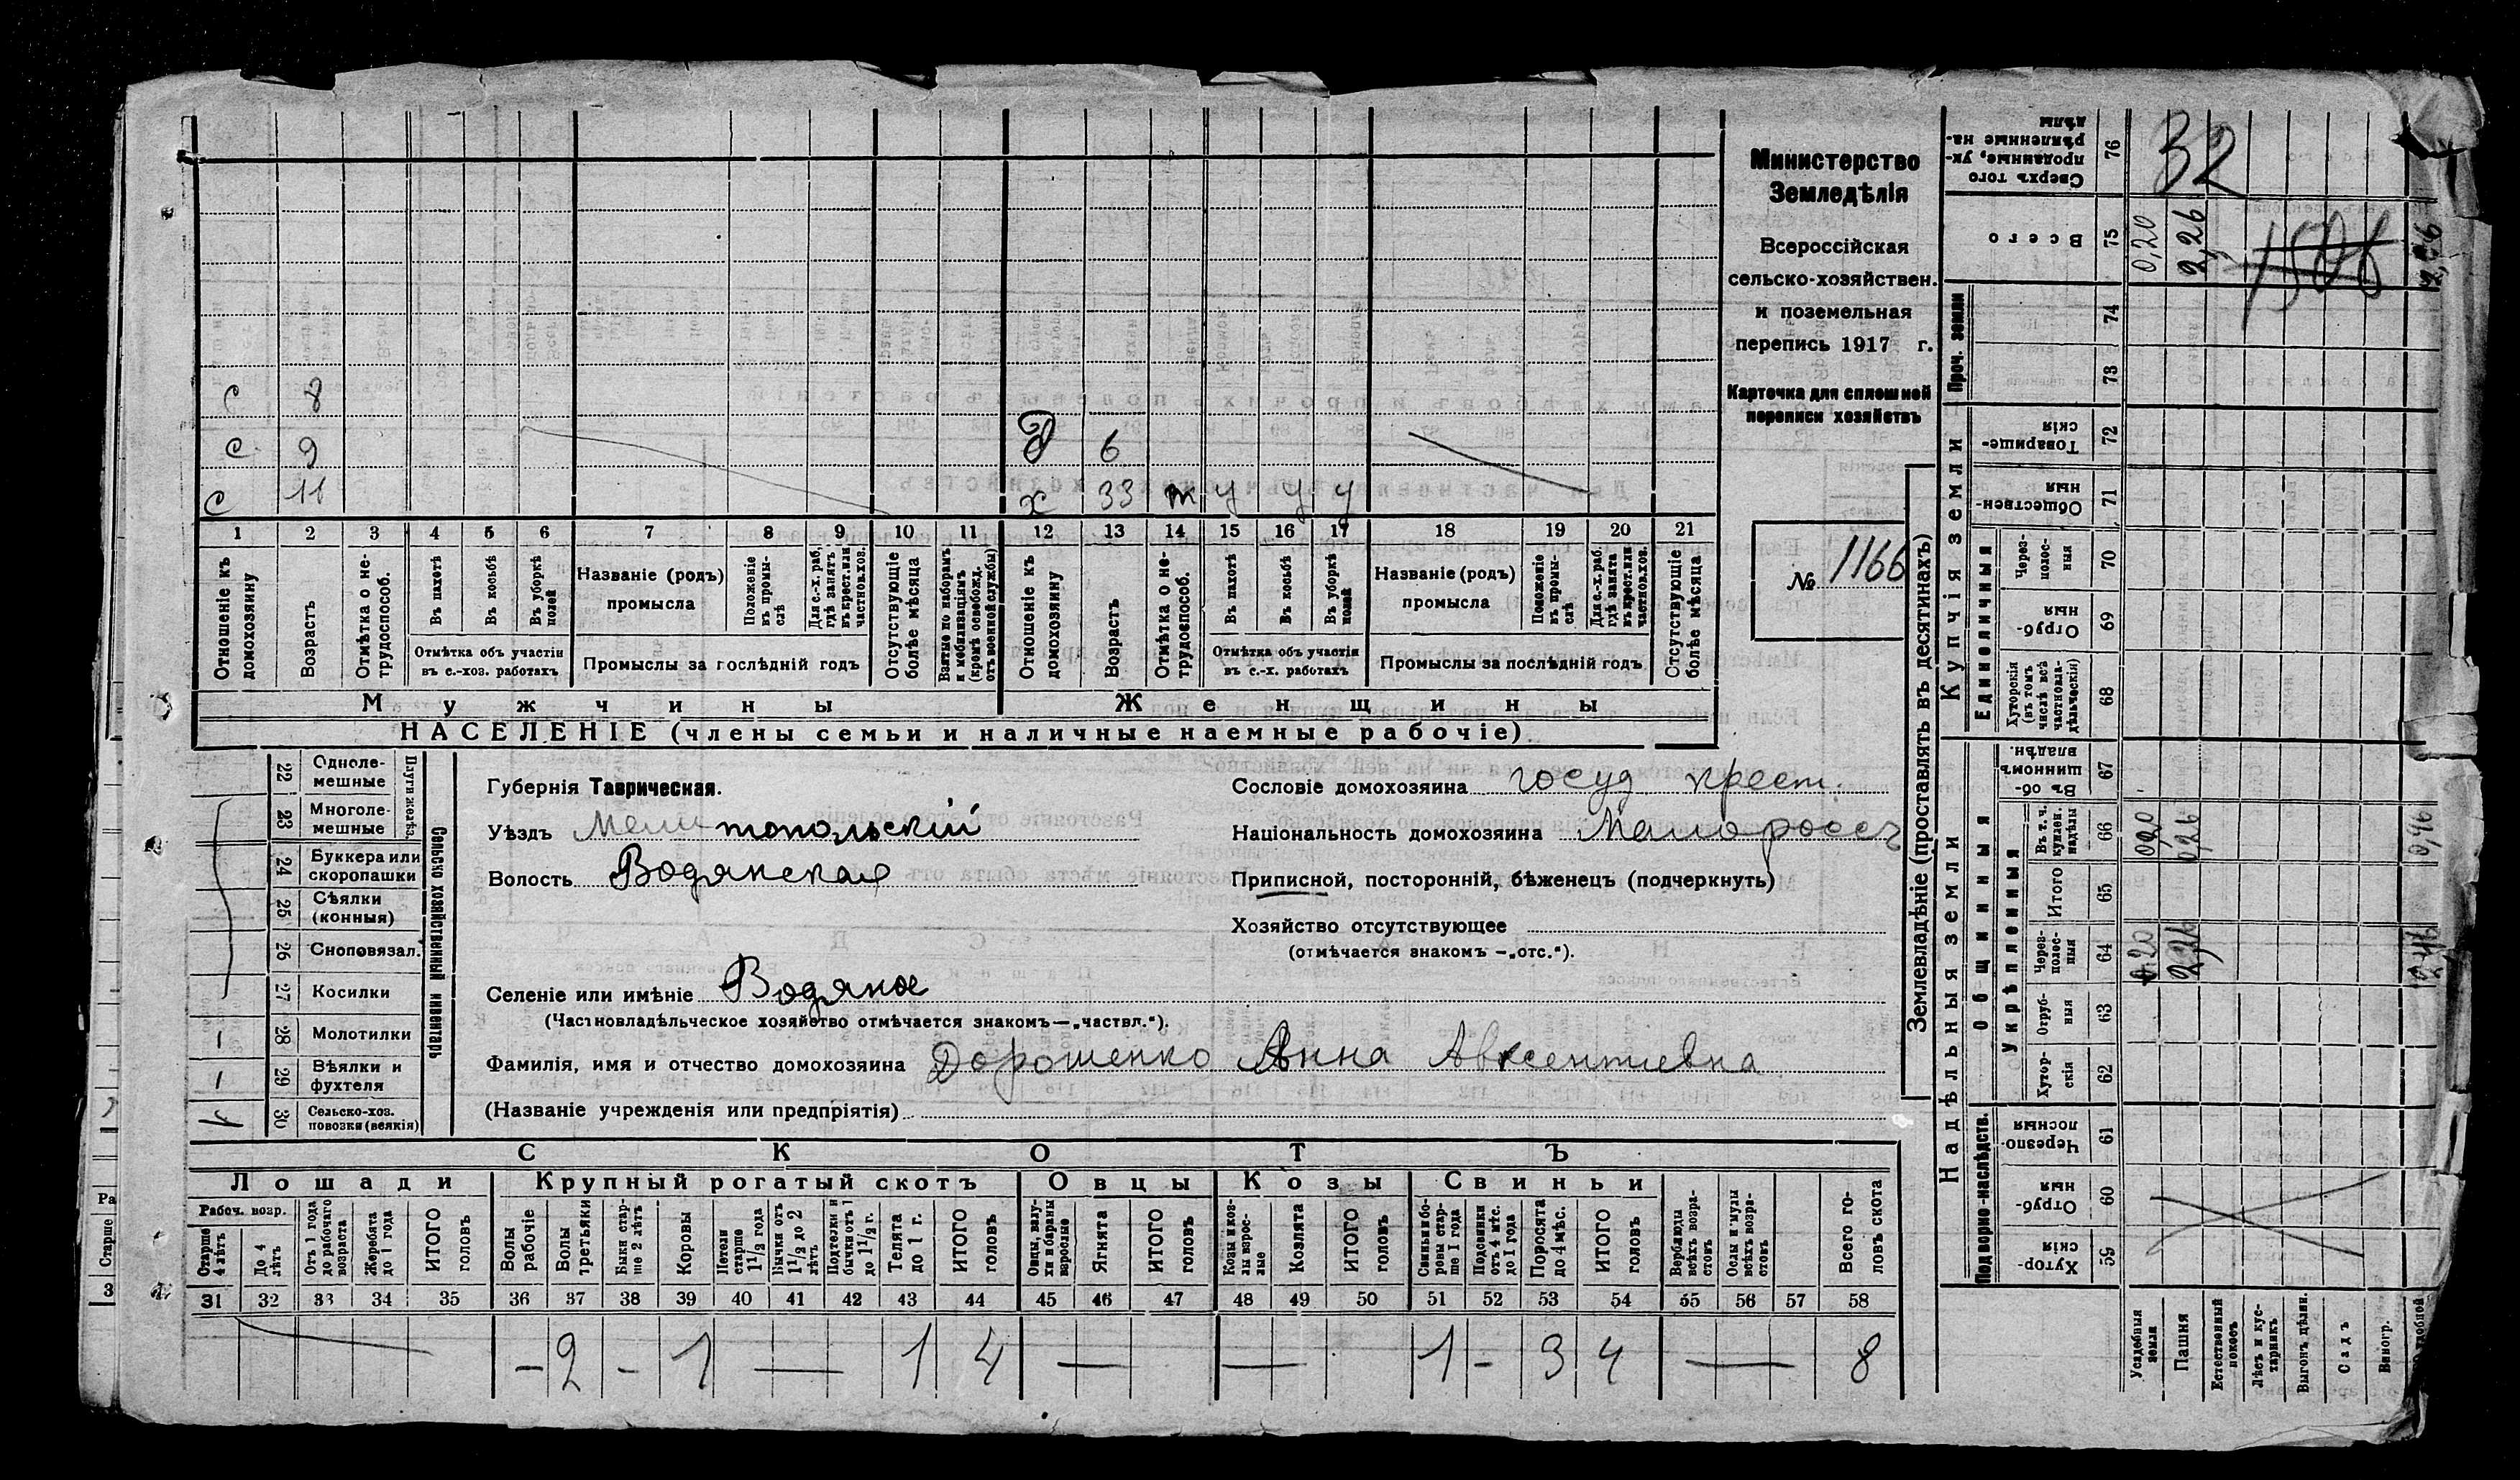 с 8
с 9 д 6
с 11 х 33 т у у у
1 2 3 4 5 6 7 8 9 10 11 12 13 14 15 16 17 18 19 20 21
Отношеніе къ домохозяину
Возрастъ
Отмѣтка о нетрудоспособ.
Въ пахотѣ
Въ косьбѣ
Въ уборкѣ полей
Отмѣтка объ участіи въ с.-хоз. работахъ
Названіе (родъ) промысла
Положеніе въ промыслѣ
Для с.-х. раб, гдѣ занятъ въ крест. или частнов. хоз.
Промыслы за послѣдній годъ
Отсутствующіе болѣе мѣсяца
Взятые по наборамъ и мобилизаціямъ (кромѣ освобожд. отъ военной службы)
Отношеніе къ домохозяину
Возрастъ
Отмѣтка о нетрудоспособ.
Въ пахотѣ
Въ косьбѣ
Въ уборкѣ полей
Отмѣтка объ участіи въ с.-х. работахъ
Названіе (родъ) промысла
Положеніе въ промыслѣ
Для с.-х. раб. гдѣ занята въ крест. или частнов. хоз.
Промыслы за послѣдній годъ
Отсутствующіе болѣе мѣсяца
Мужчины
Женщины
НАСЕЛЕНІЕ (члены семьи и наличные наемные рабочіе)
Министерство
Земледѣлія
Всероссійская
сельско-хозяйствен.
и поземельная
перепись 1917 г.
Карточка для сплошной
переписи хозяйствъ
№ 1166
22 Однолемешные
23 Многолемешные
Плуги желѣз.
24 Буккера или скоропашки
25 Сѣялки (конныя)
26 Сноповязал.
27 Косилки
28 Молотилки
29 Вѣялки и фухтеля
30 Сельско-хоз. повозки (всякія) 1
Сельско хозяйственный инвентарь
Губернія Таврическая.
Уѣздъ Мелитопольскій
Волость Водянская
Селеніе или имѣніе Водяное
(Частновладѣльческое хозяйство отмѣчается знакомъ—„частвл.“).
Фамилія, имя и отчество домохозяина Дорошенко Анна Авксентиевна
(Названіе учрежденія или предпріятія)
Сословіе домохозяина госуд крест.
Національность домохозяина Малороссъ
Приписной, посторонній, бѣженецъ (подчеркнуть)
Хозяйство отсутствующее
(отмѣчается знакомъ —„отс.“).
СКОТЪ
Лошади
Крупный рогатый скотъ
Овцы
Козы
Свиньи
Рабоч. возр.
Старше 4 лѣтъ
До 4 лѣтъ
Отъ 1 года до рабочаго возраста
Жеребята до 1 года
ИТОГО головъ
Волы рабочіе
Волы третьяки
Быки старше 2 лѣтъ
Коровы
Нетели старше 1 1/2 года
Бычки отъ 1 1/2 до 2 лѣтъ
Подтелки и бычки отъ 1 до 1 1/2 г.
Телята до 1 г.
ИТОГО головъ
Овцы, валухи и бараны взрослые
Ягнята
ИТОГО головъ
Козы и козлы взрослые
Козлята
ИТОГО головъ
Свиньи и боровы старше 1 года
Подсвинки отъ 4 мѣс. до 1 года
Поросята до 4 мѣс.
ИТОГО головъ
Верблюды всѣхъ возрастовъ
Ослы и мулы всѣхъ возрастовъ
Всего головъ скота
31 32 33 34 35 36 37 38 39 40 41 42 43 44 45 46 47 48 49 50 51 52 53 54 55 56 57 58
— 2 — 1 — 1 4 — — 1 — 3 4 — 8
Землевладѣніе (проставлять въ десятинахъ)
Купчія земли
Надѣльныя земли
Сверхъ того проданные, укрѣпленные надѣлы 76 32
Всего 75 0,20 2,26 1506
Проч. земли
74
73
Товарищескія 72
Общественныя 71
Единоличныя
Черезполосныя 70
Отрубныя 69
Хуторскія (въ томъ числѣ всѣ частновладѣльческія) 68
Общинныя
Въ общинномъ владѣн. 67
Укрѣпленныя
Въ т. ч. куплен. надѣлы 66 0,20 0,26 0,46
Итого 65
Черезполосныя 64 0,20 2,26 2,46
Отрубныя 63
Хуторскія 62
Подворно-наслѣдств.
Черезполосныя 61
Отрубныя 60
Хуторскія 59
Усадебныя земли
Пашня
Естественный покосъ
Лѣсъ и кустарникъ
Выгонъ дѣлян.
Садъ
Виногр.
Ра
Старше
3